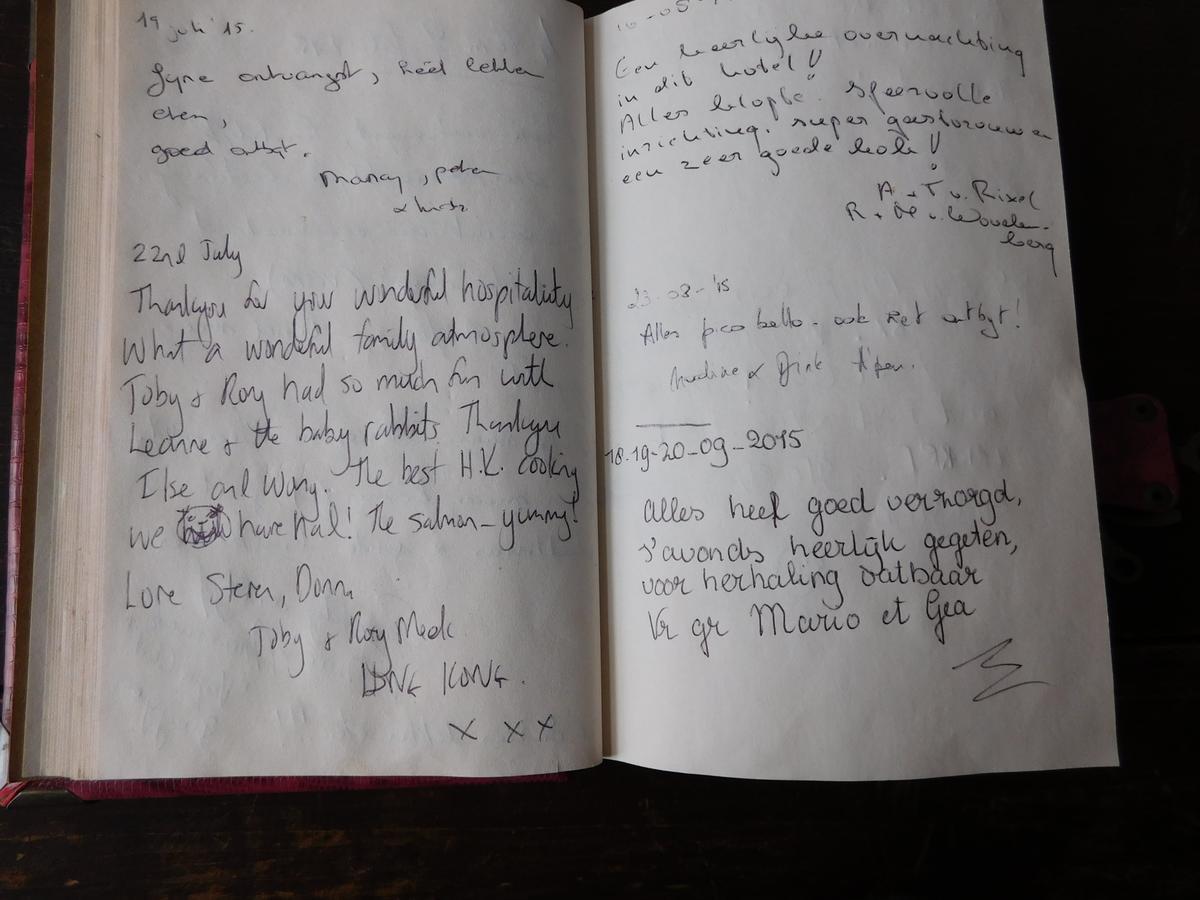 19 juli '15.
fijne ontvangst, heel lekker
eten,
goed ontbijt.
22nd July
Thankyou for your wonderful hospitalinty
What a wonderful family atmosphere.
Toby & Rory had so much fun with
Leanne & the baby rabbits. Thankyou
Ilse and Wong. The best H.K. cooking
we have had! The salmon - yummy!
Love Steven, Donna
Toby & Rory Meek
HONG KONG.
x x x
Een heerlijke overnachting
in dit hotel!!
Alles klopte. Sfeervolle
inrichting. super gastvrouw en
een zeer goede kok!!
A + T v. Rixel
R + M v. Wouden-
berg
23-08-'15
Alles pico bello - ook het ontbijt!
18-19-20-09-2015
alles heel goed verzorgd,
s'avonds heerlijk gegeten,
voor herhaling vatbaar
Vr gr Mario et Gea